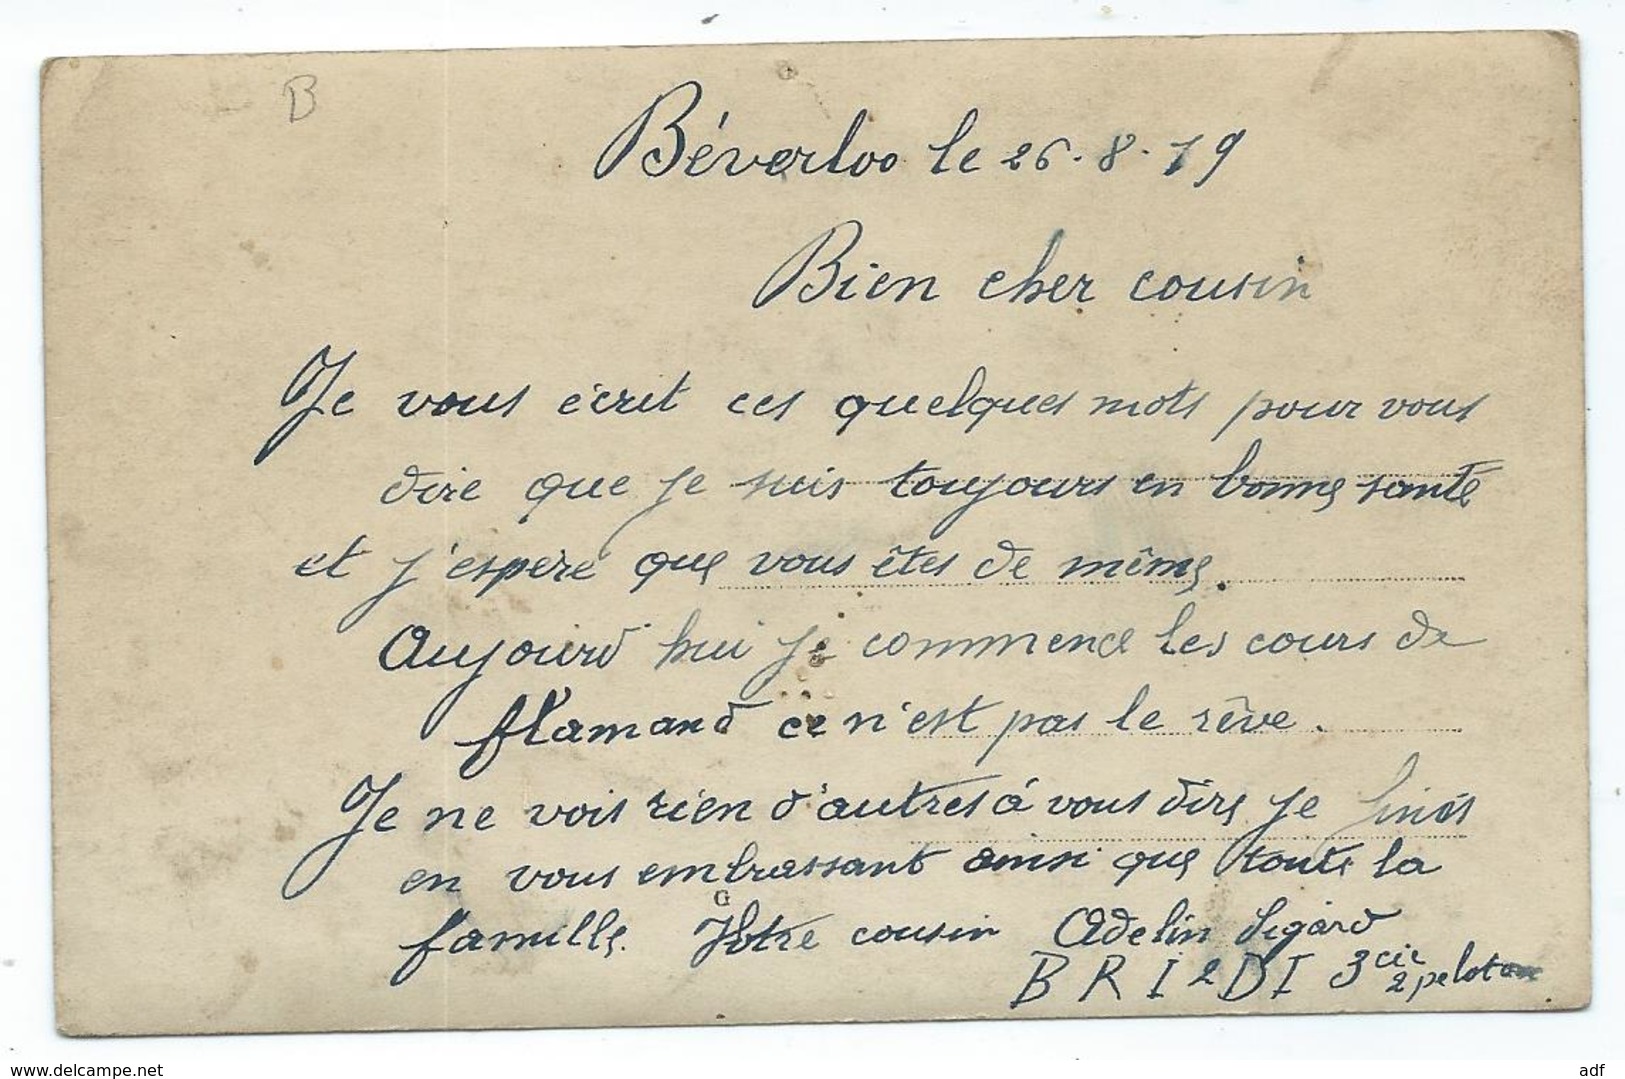 B
Béverloo le 26.8.19
Bien cher cousin
Je vous écrit ces quelques mots pour vous
dire que je suis toujours en bonne santé
et j'espère que vous êtes de même.
Aujourd'hui je commence les cours de
flamand ce n'est pas le rêve.
Je ne vois rien d'autres à vous dire je finis
en vous embrassant ainsi que toute la
G
famille. Votre cousin Adelin Sigard
B R I 2 D I 3 cie
2 peloton
www.delcampe.net
adf